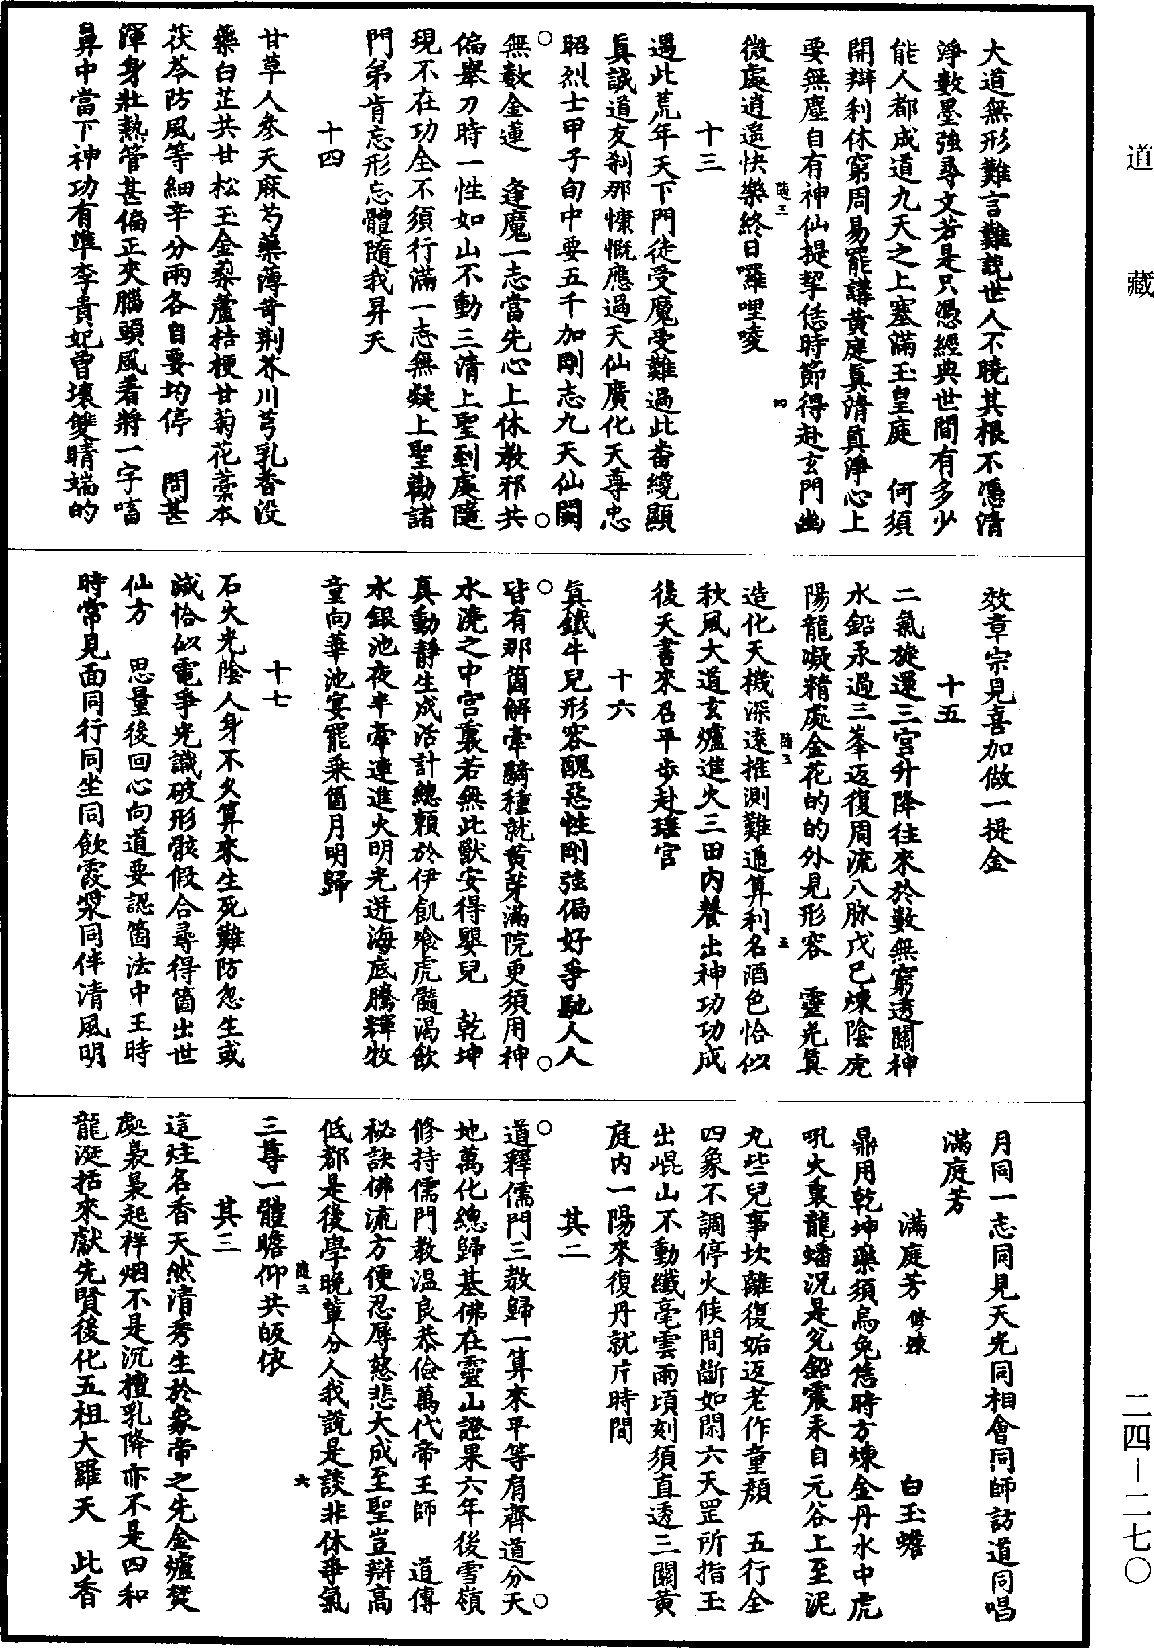 道藏
大道無形難言難說世人不曉其根不憑清
淨數墨強尋文若是只憑經典世間有多少
能人都成道九天之上塞滿玉皇庭　何須
開辯利休窮周易罷講黃庭真清真淨心上
要無塵自有神仙提挈恁時節得赴玄門幽
微處逍遥快樂終日囉哩唛
隨三
四
十三
遇此荒年天下門徒受魔受難過此畨繞顯
真誠道友刹那慷慨應過天仙廣化天尊忠
昭烈士甲子旬中要五千加剛志九天仙闕
無數金蓮　逢魔一志當先心上休教邪共
偏舉刀時一性如山不動三清上聖到處隨
現不在功全不須行滿一志無疑上聖勸諸
門弟肯忘形忘體隨我昇天
十四
甘草人參天麻芍藥薄苛荆芥川芎乳香没
藥白芷共甘松玉金藜蘆桔梗甘菊花藁本
茯苓防風等細辛分兩各自要均停　問甚
渾身壯熱管甚偏正夾腦頭風着將一字㗜
鼻中當下神功有準李貴妃曾壞雙睛端的
效章宗見喜加做一提金
十五
二氣旋還三宮升降往來於數無窮透關神
水鉛汞過三峯返復周流八脉戊己煉陰虎
陽龍凝精處金花的的外見形容　靈光真
造化天機深遠推測難通算利名酒色恰似
隨三
五
秋風大道玄爐進火三田内養出神功功成
後天書來召平步赴瑶宮
十六
真鐵牛兒形容醜惡性剛強偏好爭馳人人
皆有那箇解牽騎種就黄芽滿院更須用神
水澆之中宮裏若無此獸安得嬰兒　乾坤
真動靜生成活計總頼於伊飢飡虎髓渴飲
水銀池夜半牽連進火明光迸海底騰輝牧
童向華池宴罷乘箇月明歸
十七
石火光陰人身不久算來生死難防忽生或
滅恰似電爭光識破形骸假合尋得箇出世
仙方　思量後回心向道要認箇法中王時
時常見面同行同坐同飲霞漿同伴清風明
月同一志同見天光同相會同師訪道同唱
滿庭芳
滿庭芳修煉　白玉蟾
鼎用乾坤藥須烏兔恁時方煉金丹水中虎
吼火裏龍蟠況是兌鉛震汞自元谷上至泥
丸些兒事坎離復姤返老作童顔　五行全
四象不調停火候間斷如閑六天罡所指玉
出崐山不動纖毫雲雨頃刻須直透三關黄
庭内一陽來復丹就片時間
其二
道釋儒門三教歸一算來平等肩齊道分天
地萬化總歸基佛在靈山證果六年後雪嶺
修持儒門教温良恭儉萬代帝王師　道傳
秘訣佛流方便忍辱慈悲大成至聖豈辯高
低都是後學晚輩分人我說是談非休爭氣
三尊一體瞻仰共皈依
隨三
六
其三
這炷名香天然清秀生於象帝之先金爐焚
處裊裊起祥烟不是沉檀乳降亦不是四和
龍涎拈來獻先賢後化五祖大羅天　此香
二四—二七〇